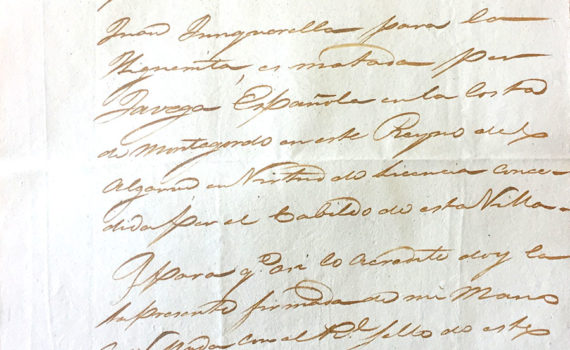 Juan Junquerella para la
Higuerita, es matada por
Javega Española en la Costa
de Montegordo en este Reyno del
Algarve en Virtud de Licencia conce-
dida por el Cabildo de esta Villa-
Ypara q.e asi lo acredite doy la
la presente firmada de mi Mano
con el R.l sello de este